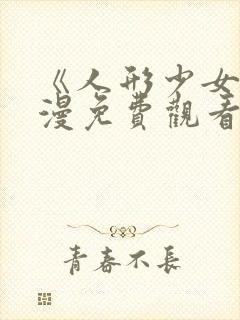 《人形少女
漫免費觀看
青春不長